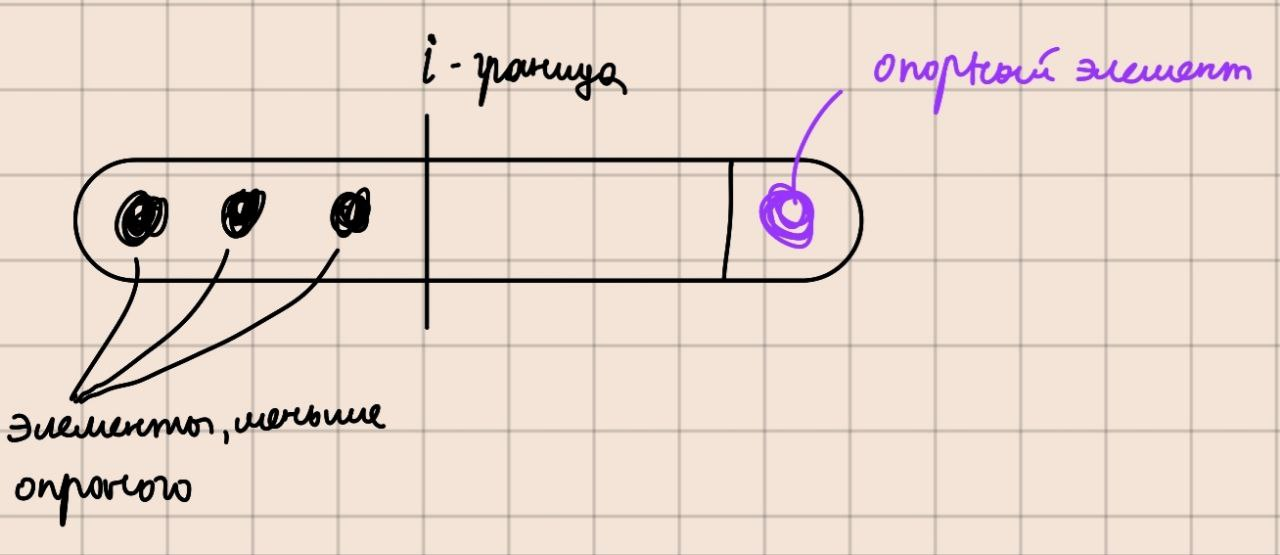 i - граница
опорный элемент
Элементы, меньше
опрного